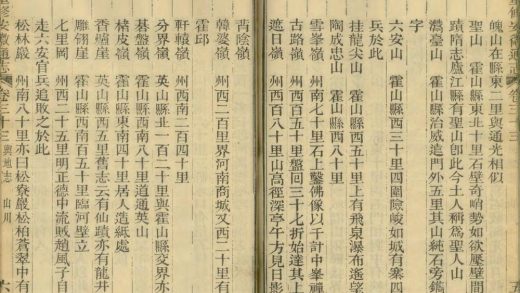 魄山在縣東二里與通光相似
聖山 霍山縣東北十里石壁奇峭勢如欲墜壁間
蹟隋志廬江縣有聖山卽此今土人稱爲聖人山
霍山縣治威遠門外五里其山純石旁鐫
字
六安山 霍山縣西三十里四圍險峻如城有寨四
兵於此
挂龍尖山 霍山縣西五十里上有飛泉瀑布遙望
陶成忠山 霍山縣西八十里
雪峯嶺 州南七十里石上鑿佛像以千計中峯禪
古路嶺 州西百六十里盤回三十七折始達其上
遮日嶺 州西百八十里山高徑深亭午方見日影
背陰嶺
韓婆嶺 州西二百里界河南商城又西二十里有
霍邱
軒轅嶺 州西南二百四十里
分界嶺 英山縣北一百二十里與霍山縣交界亦
碁盤嶺 霍山縣西南八十里道通英山
楮皮嶺 霍山縣東南四十里居人造紙處
香爐崖 霍山縣西五里舊志云有仙蹟亦有龍井
雕翎崖 霍山縣西南百五十里臨河壁立
七里岡 州西二十五里明正德中流賊趙風子自
走六安官兵追敗之於此
松林巖 州南八十里亦曰松寮巖松柏蒼翠中有
修安徽通志 卷三十三 輿地志 山川 六